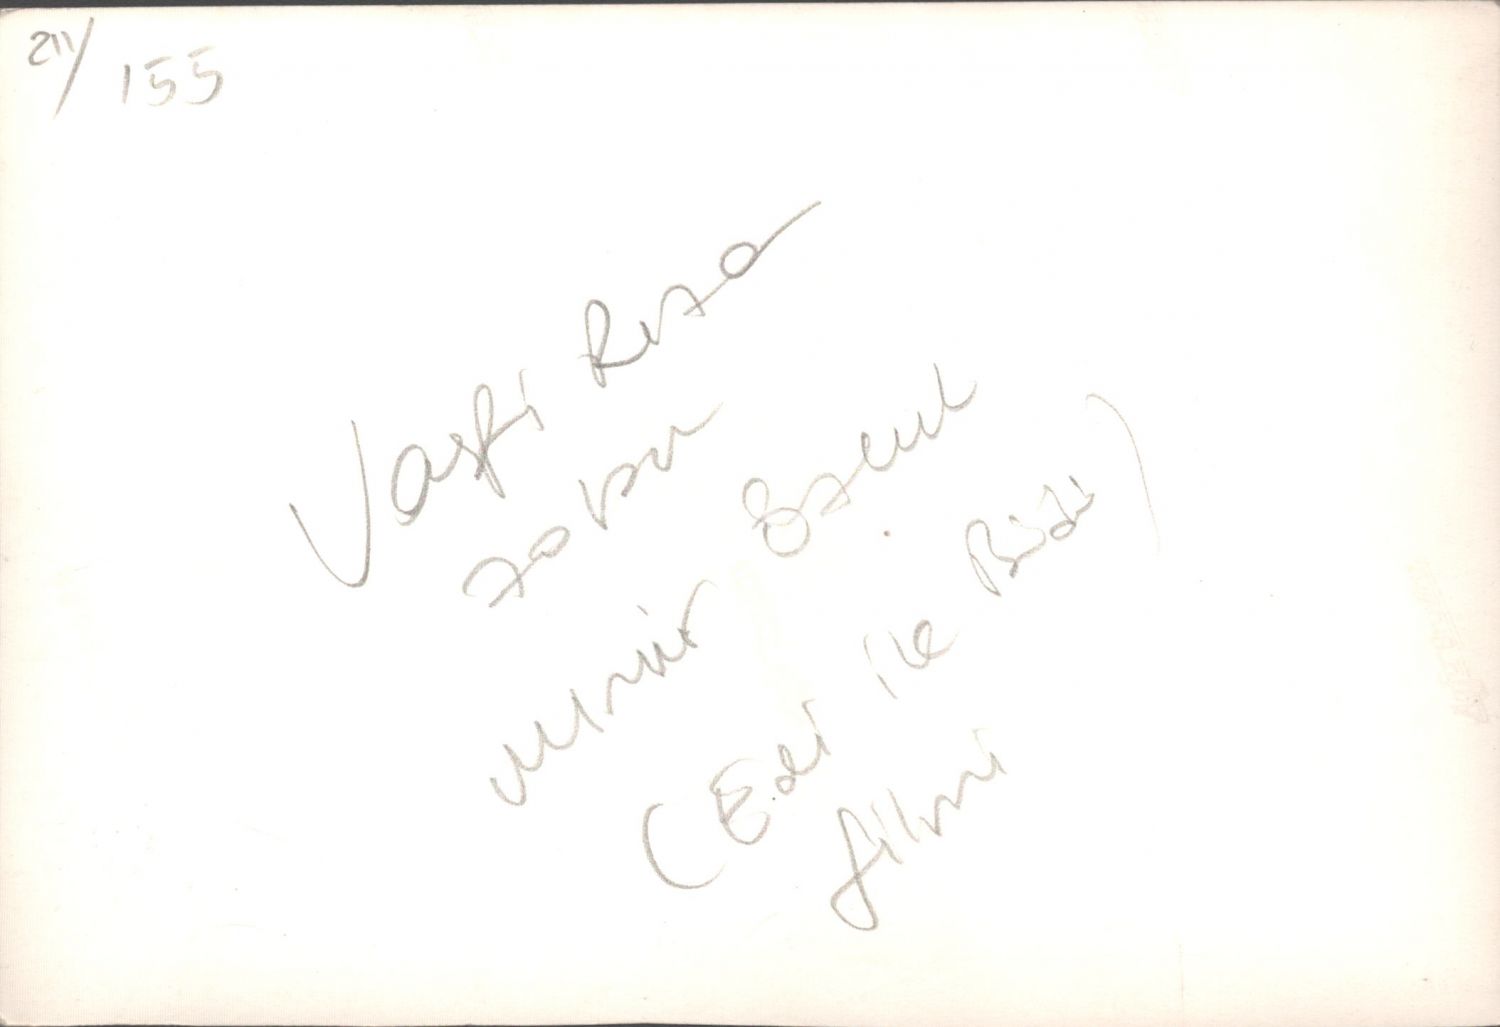 211/
155
Vasfi Rıza
Zobu
Münir Özkul
(Edi ile Büdü)
filmi